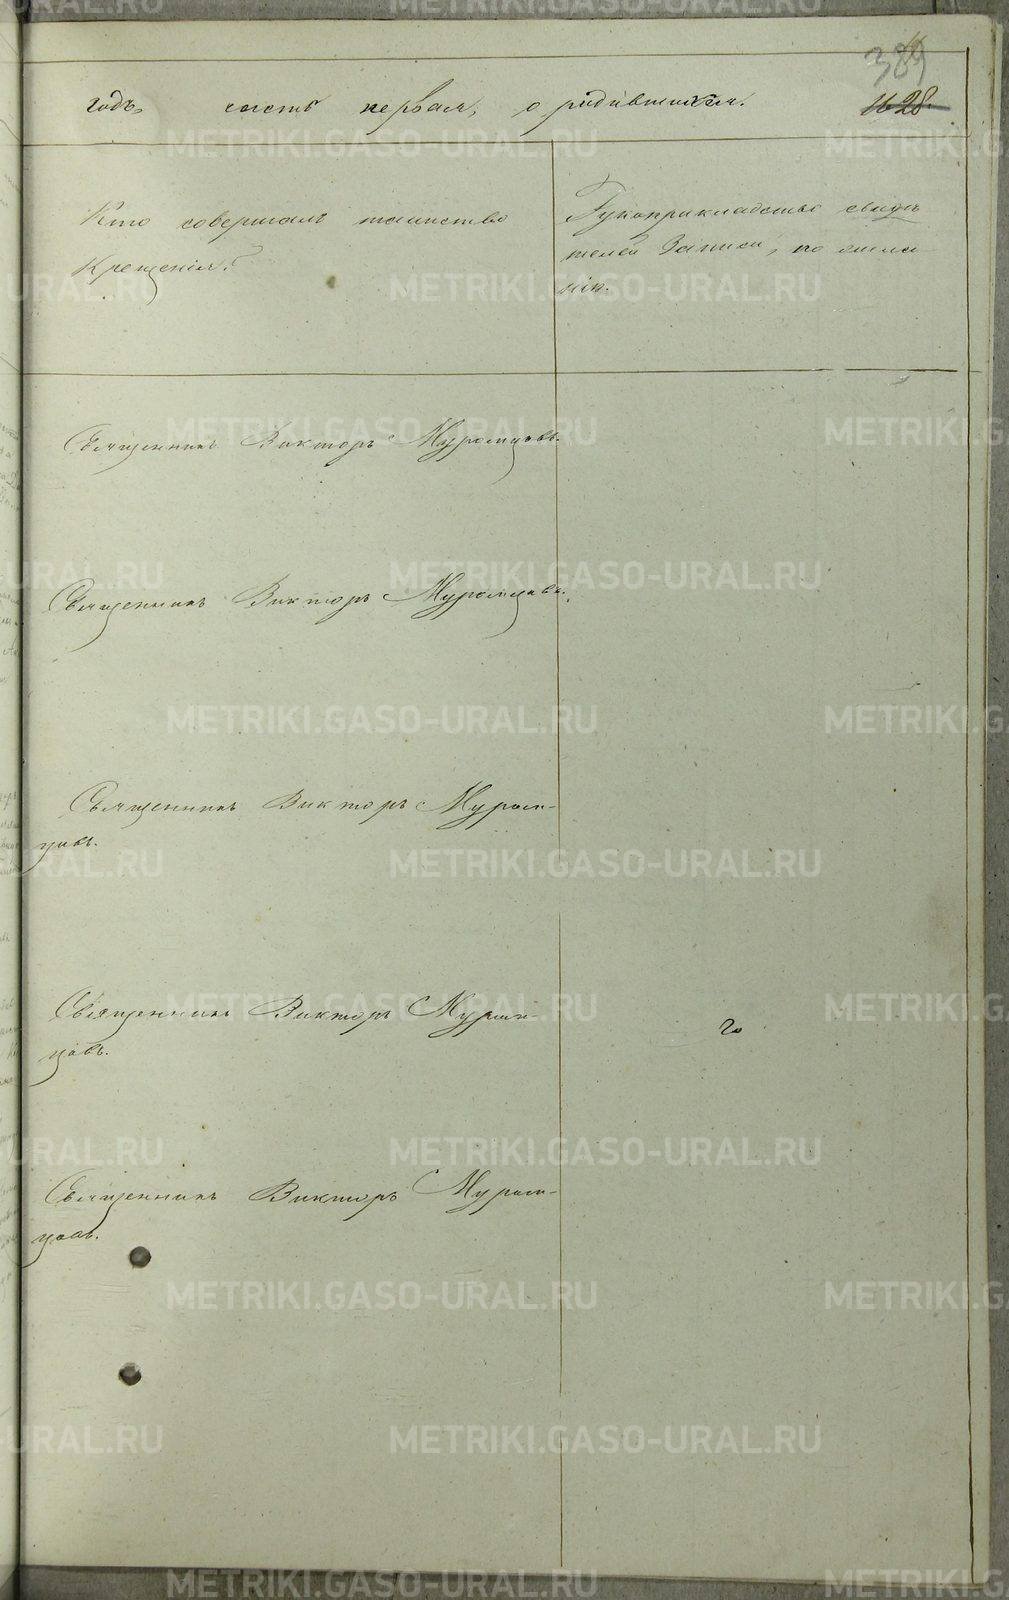 389
годъ, часть первая, о родившихся.
1628.
Кто совершалъ таинство
Крещенія?
Рукоприкладство свидѣ
телей Записи, по жела
нію.
Священникъ Викторъ Муромцовъ.
Священникъ Викторъ Муромцовъ.
Священникъ Викторъ Муром-
цовъ.
Священникъ Викторъ Муром-
цовъ.
Священникъ Викторъ Муром-
цовъ.
METRIKI.GASO-URAL.RU